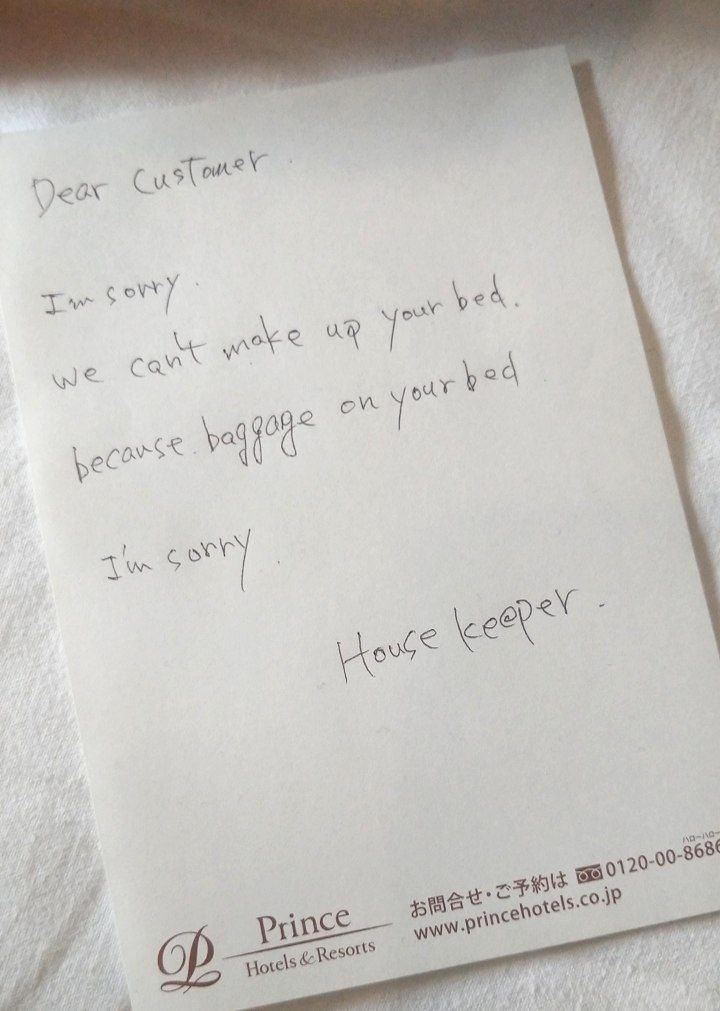 Dear Customer.
I'm sorry.
we can't make up your bed.
because baggage on your bed
I'm sorry.
House keeper.
Prince
Hotels & Resorts
ハローハロー
お問合せ・ご予約は 0120-00-8686
www.princehotels.co.jp